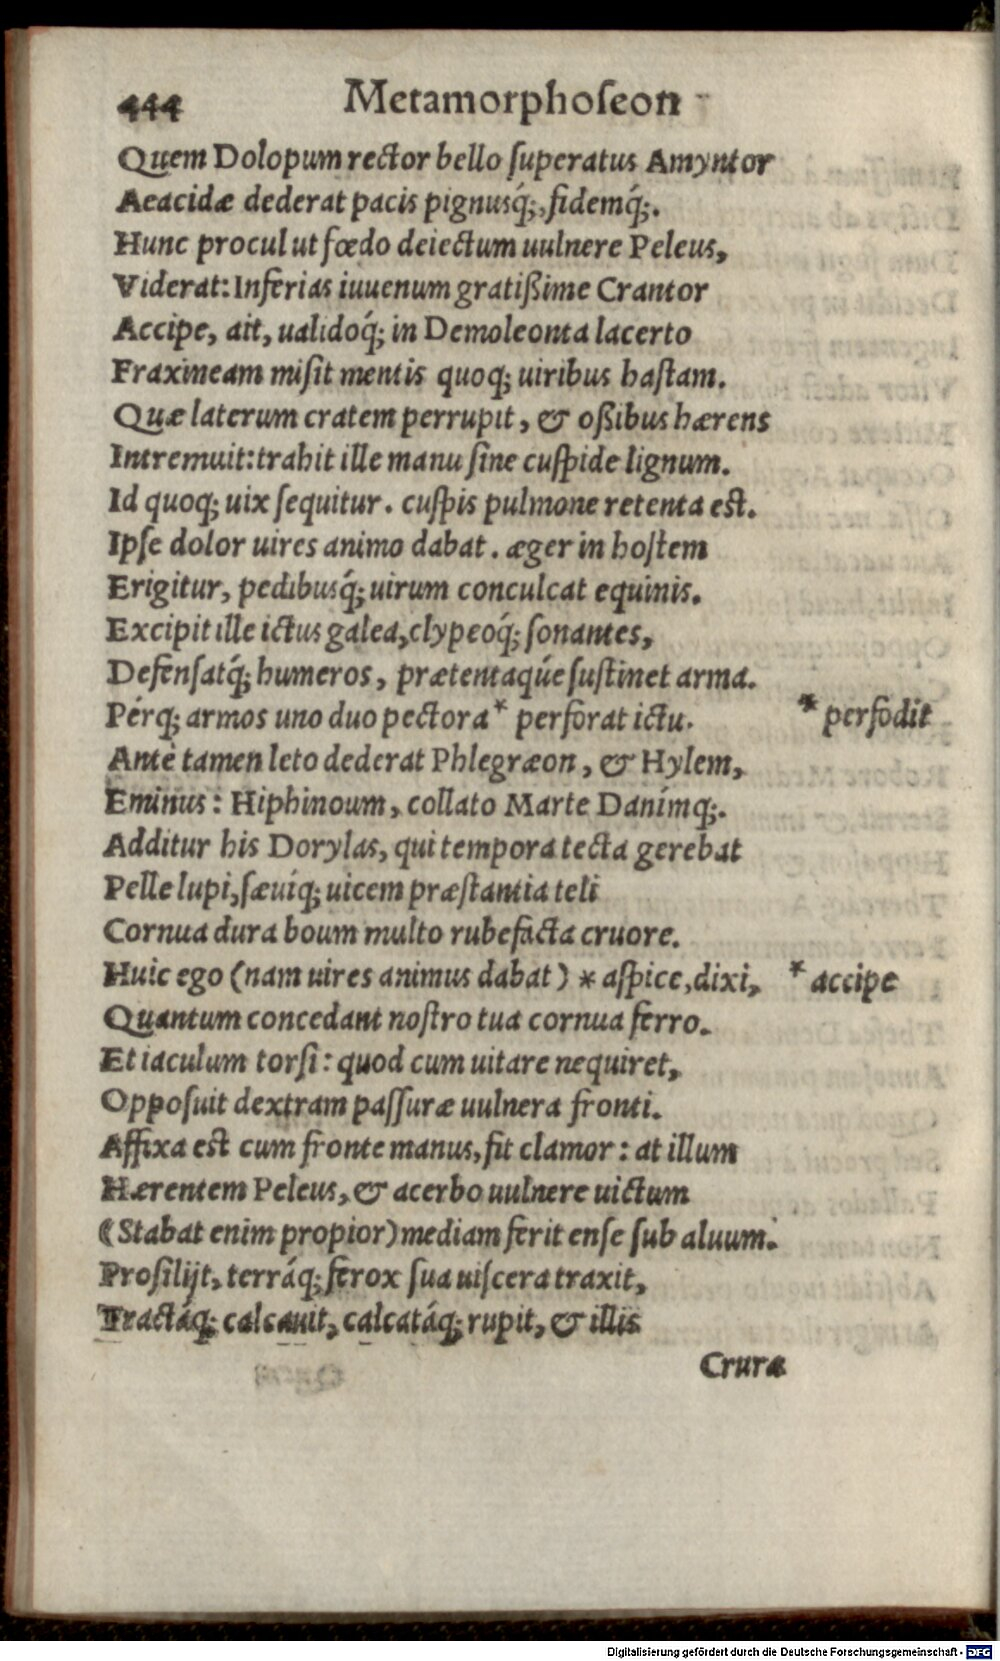 444 Metamorphoſeon
Quem Dolopum rector bello ſuperatus Amyntor
Aeacidæ dederat pacis pignusq́;, fidemq́;.
Hunc procul ut fœdo deiectum uulnere Peleus,
Viderat: Inferias iuuenum gratißime Crantor
Accipe, ait, ualidoq́; in Demoleonta lacerto
Fraxineam miſit mentis quoq; uiribus haſtam.
Quæ laterum cratem perrupit, & oßibus hærens
Intremuit: trahit ille manu ſine cuſpide lignum.
Id quoq; uix ſequitur. cuſpis pulmone retenta est.
Ipſe dolor uires animo dabat. æger in hoſtem
Erigitur, pedibusq́; uirum conculcat equinis.
Excipit ille ictus galea, clypeoq́; ſonantes,
Defenſatq́; humeros, prætentaqúe ſuſtinet arma.
Pérq; armos uno duo pectora * perforat ictu. * perfodit
Antè tamen leto dederat Phlegræon, & Hylem,
Eminus: Hiphinoum, collato Marte Danímq;.
Additur his Dorylas, qui tempora tecta gerebat
Pelle lupi, ſæuíq; uicem præſtantia teli
Cornua dura boum multo rubefacta cruore.
Huic ego (nam uires animus dabat) * aſpice, dixi, * accipe
Quantum concedant noſtro tua cornua ferro.
Et iaculum torſi: quod cum uitare nequiret,
Oppoſuit dextram paſſuræ uulnera fronti.
Affixa est cum fronte manus, fit clamor: at illum
Hærentem Peleus, & acerbo uulnere uictum
(Stabat enim propior) mediam ferit enſe ſub aluum.
Proſilijt, terráq; ferox ſua uiſcera traxit,
Tractáq; calcauit, calcatáq; rupit, & illis
Crura
Digitalisierung gefördert durch die Deutsche Forschungsgemeinschaft - DFG